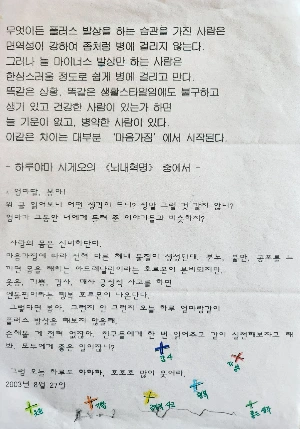 무엇이든 플러스 발상을 하는 습관을 가진 사람은
면역성이 강하여 좀처럼 병에 걸리지 않는다.
그러나 늘 마이너스 발상만 하는 사람은
한심스러울 정도로 쉽게 병에 걸리고 만다.
똑같은 상황, 똑같은 생활스타일임에도 불구하고
생기 있고 건강한 사람이 있는가 하면
늘 기운이 없고, 병약한 사람이 있다.
이같은 차이는 대부분 '마음가짐'에서 시작된다.
- 하루야마 시게오의 《뇌내혁명》 중에서 -
위 글 읽어보니 어떤 생각이 드니? 정말 그럴 것 같지 않니?
엄마가 그동안 너에게 들려 준 이야기들과 비슷하지?
사람의 몸은 신비하단다.
마음가짐에 따라 전혀 다른 체내 물질이 생성된대. 분노, 불안, 공포를 느
끼면 몸을 해하는 아드레날린이라는 호르몬이 분비되지만,
웃음, 기쁨, 감사, 매사 긍정적 사고를 하면
엔돌핀이라는 행복 호르몬이 나온단다.
플러스 발상을 해보지 않을래.
손해볼 게 전혀 없잖아. 친구들에게 한 번 읽어주고 같이 실천해보자고 해
봐. 모두에게 좋은 일이잖니?
그럼 오늘 하루도 하하하, 호호호 많이 웃어라.
2003년 8월 27일